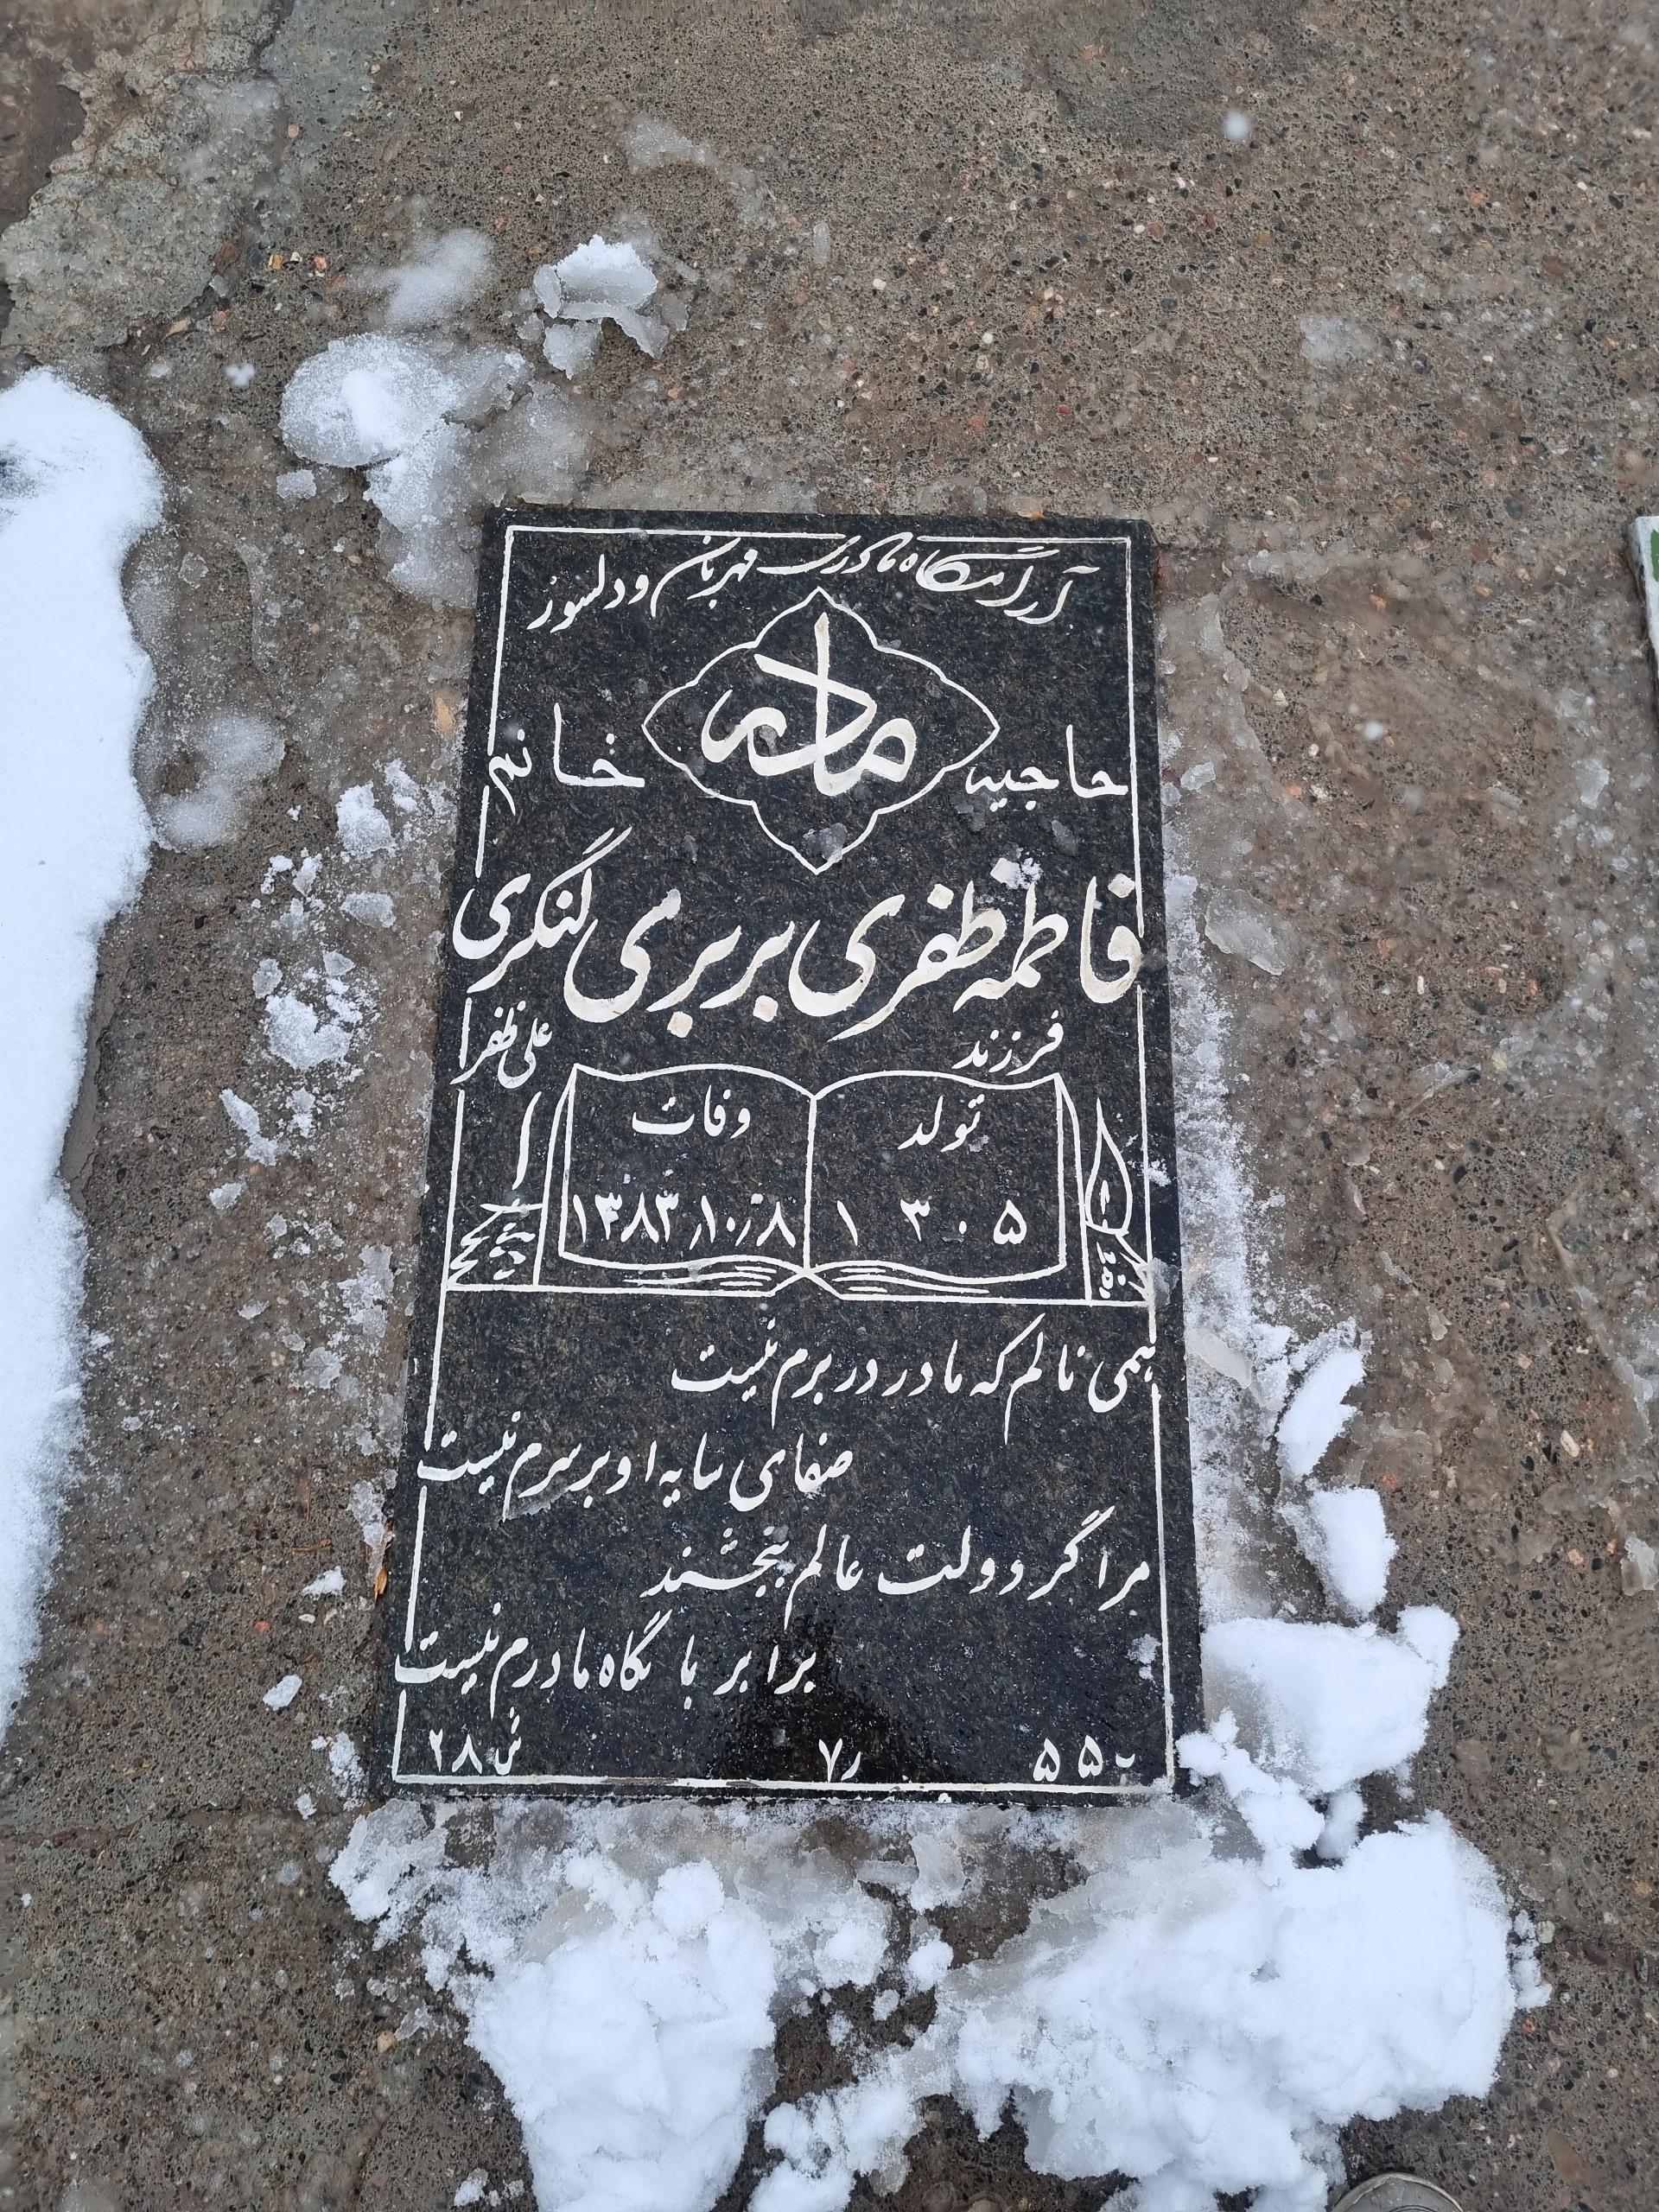 آرامگاه مادری مهربان و دلسوز
مادر
حاجیه خانم
فاطمه ظفری بربری گنگری
فرزند علی ظفر
تولد وفات
۱۳۰۵ ۱۳۸۳/۱۰/۸
همی نالم که مادر در برم نیست
صفای سایه او بر سرم نیست
مرا گر دولت عالم ببخشند
برابر با نگاه مادرم نیست
ب ۵۵ ر ۷ ش ۲۸